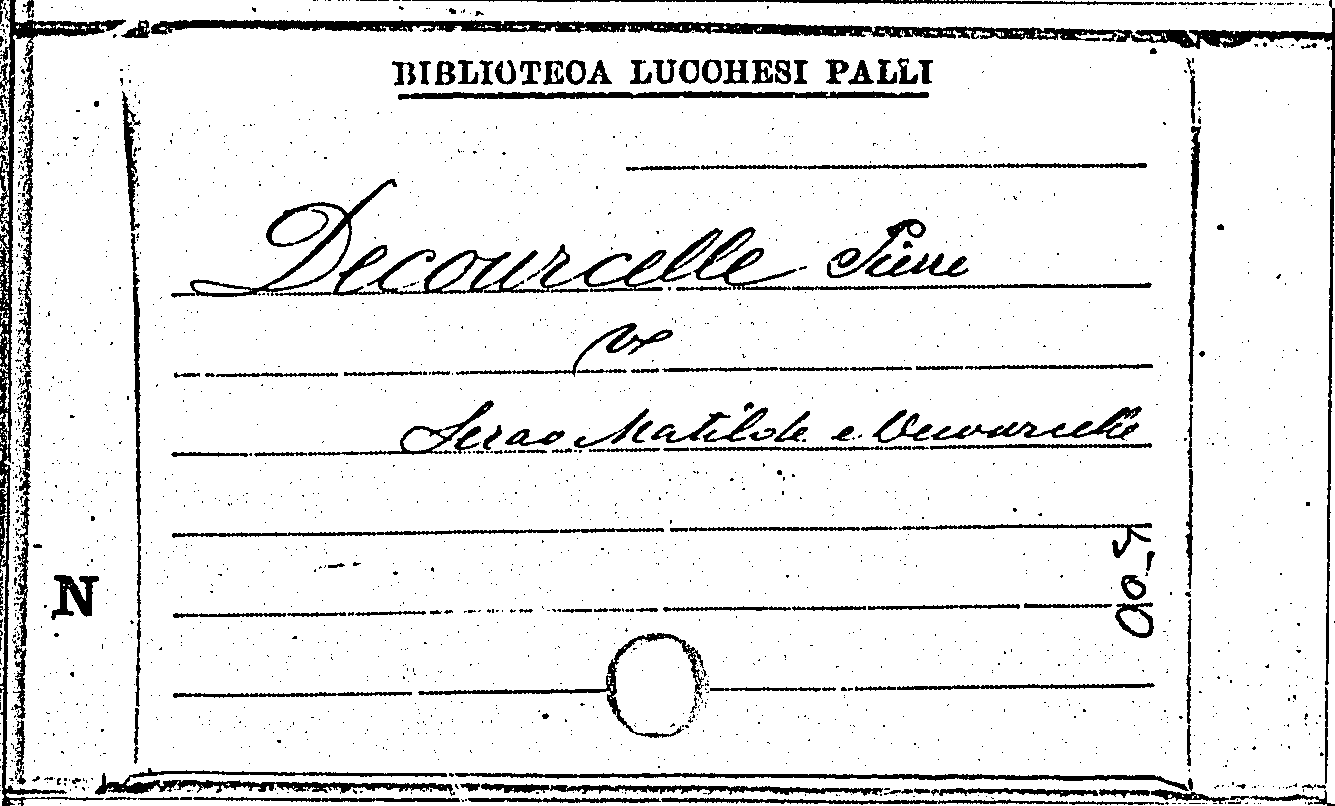 BIBLIOTECA LUCCHESI PALLI
Decourcelle Pierre
Serao Matilde e Decourcelle
N